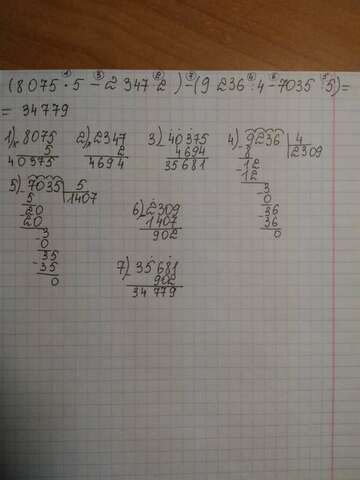 (8075 · 5 - 2347 · 2) - (9236 : 4 - 7035 : 5) =
= 34779
1) 8075 2) 2347 3) 40375 4) 9236 4
5 2 4694 8 2309
40375 4694 35681 12
12
3
0
36
36
0
5) 7035 5
5 1407
20
20
3
0
35
35
0
6) 2309
1407
902
7) 35681
902
34779